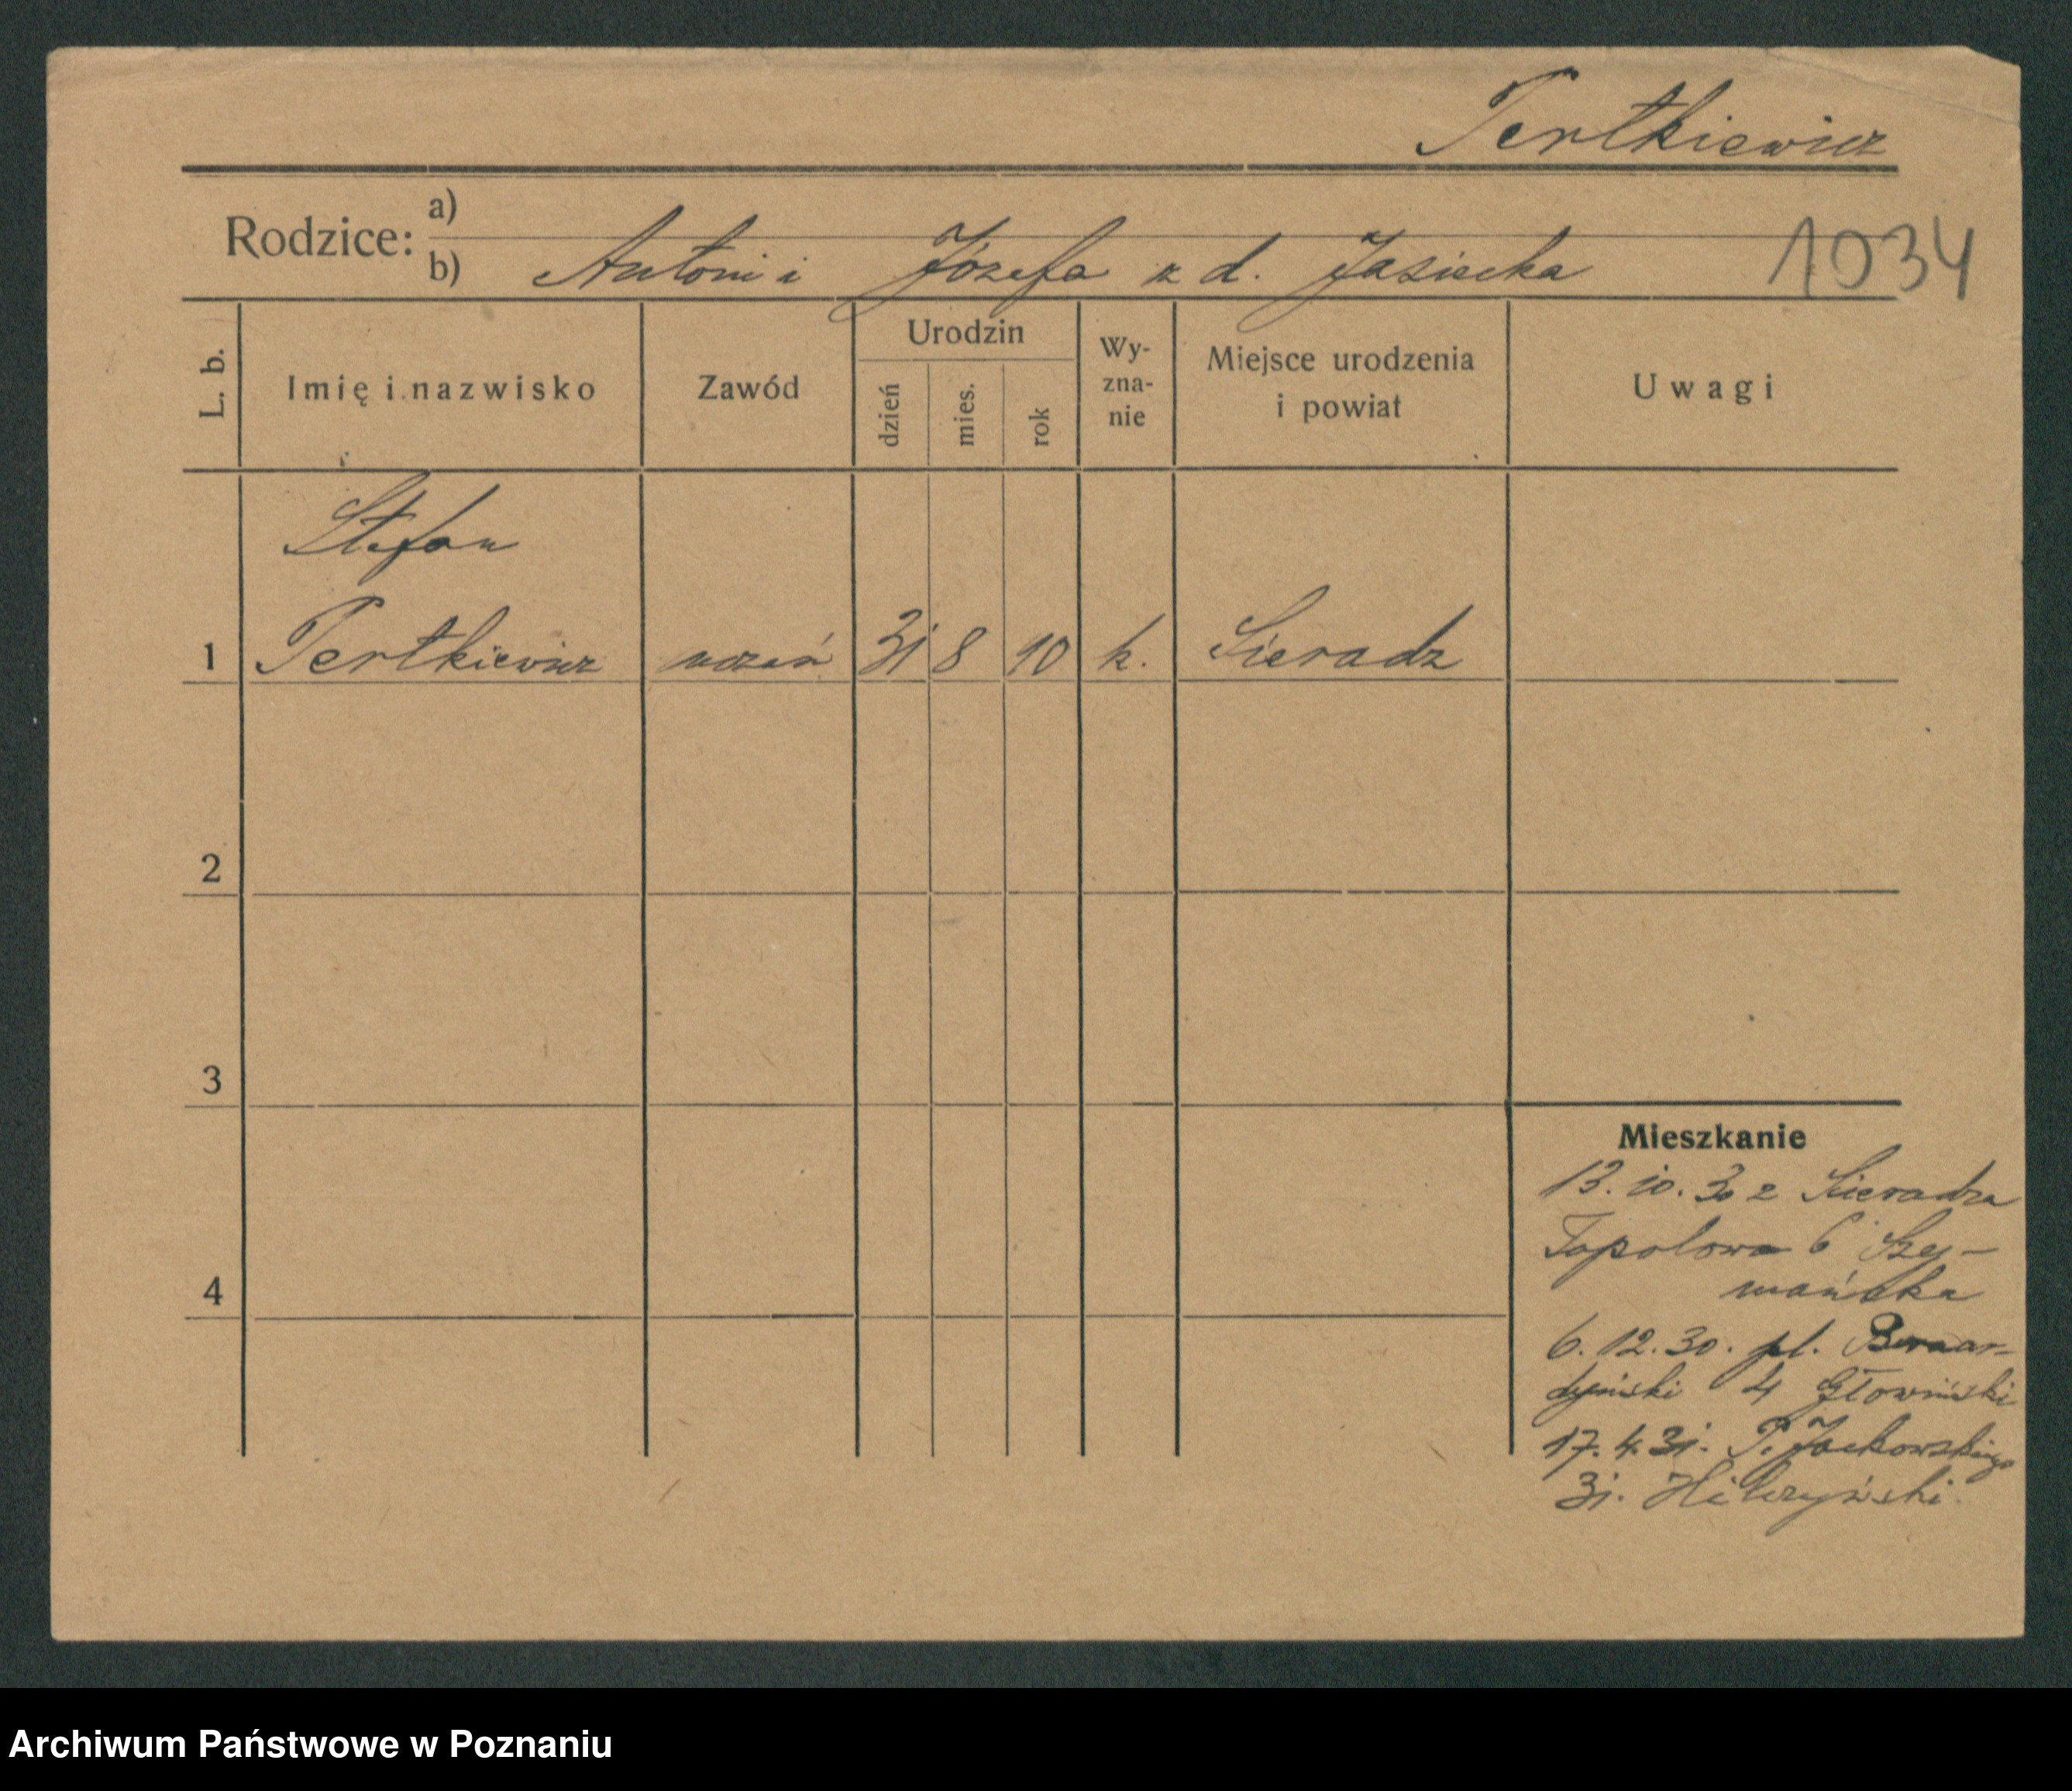 Pertkiewicz
Rodzice: a)
b) Antoni i Józefa z d. Jasiecka
1034
L. b.
Imię i nazwisko
Zawód
Urodzin
dzień
mies.
rok
Wy-
zna-
nie
Miejsce urodzenia
i powiat
Uwagi
Stefan
1 Pertkiewicz uczeń 31 8 10 k. Sieradz
2
3
4
Mieszkanie
13.10.30 z Sieradza
Topolowa 6 Szy-
mańska
6.12.30. pl. Bernar-
dyński 4 Głowiński
17.4.31. P. Jackowskiego
31.